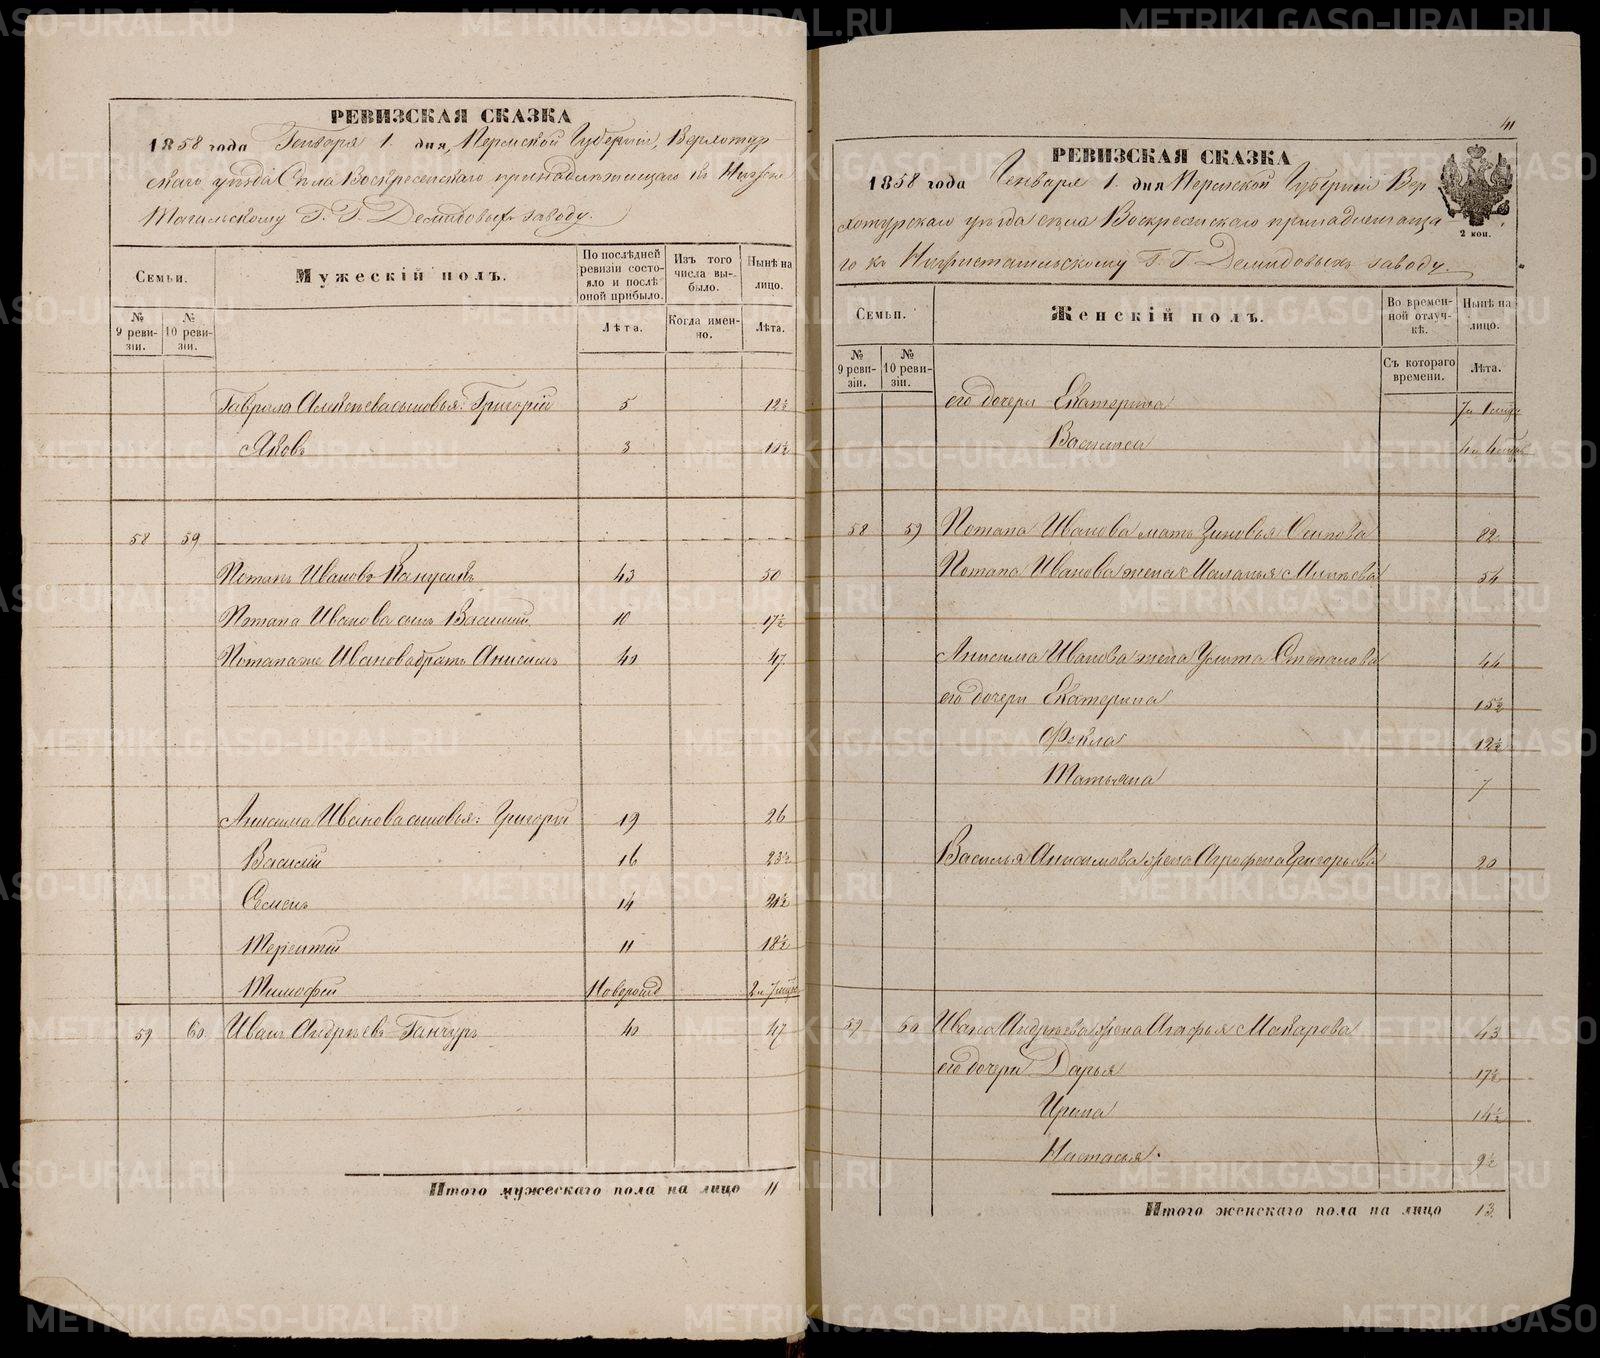 РЕВИЗСКАЯ СКАЗКА
1858 года Генваря 1. дня, Пермской Губерніи, Верхотур
скаго уѣзда Села Воскресенскаго принадлежащаго къ Нижне
Тагильскому Г. Г. Демидовыхъ заводу.
Семьи.
Мужескій полъ.
По послѣдней ревизіи состояло и послѣ оной прибыло.
Изъ того числа выбыло.
Нынѣ на лицо.
№ 9 ревизіи.
№ 10 ревизіи.
Лѣта.
Когда именно.
Лѣта.
Гаврила Алексѣева сыновья: Григорій 5 12½
Яковъ 3 10½
58 59
Потапъ Ивановъ 43 50
Потапа Иванова сынъ Василій 10 17½
Потапа же Иванова братъ Анисимъ 40 47
Анисима Иванова сыновья: Григорій 19 26
Василій 16 23½
Семенъ 14 21½
Терентій 11 18½
Тимофей Новорожд 2 и 7 мѣс
59 60 Иванъ Андрѣевъ Ганчуръ 40 47
Итого мужескаго пола на лицо 11
41
РЕВИЗСКАЯ СКАЗКА
1858 года Генваря 1. дня Пермской Губерніи Вер
хотурскаго уѣзда села Воскресенскаго принадлежаща
го къ Нижнетагильскому Г. Г. Демидовыхъ заводу.
2 коп.
Семьи.
Женскій полъ.
Во временной отлучкѣ.
Нынѣ на лицо.
№ 9 ревизіи.
№ 10 ревизіи.
Съ котораго времени.
Лѣта.
его дочери Екатерина
Васса
58 59 Потапа Иванова мать Зиновья Осипова 82
Потапа Иванова жена Маланья 54
Анисима Иванова жена Улита Степанова 44
его дочери Екатерина 15½
Фекла 12½
Татьяна 7
Василья Анисимова жена Агрофена Григорьева 20
59 60 Ивана Андрѣева жена Агафья Макарова 43
его дочери Дарья 17½
Ирина 14½
Настасья. 9½
Итого женскаго пола на лицо 13.
METRIKI.GASO-URAL.RU